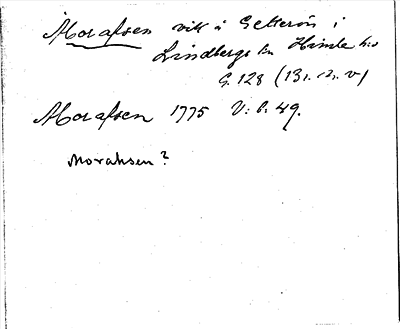 Morafsen vik å Getterön i
Lindbergs sn Himle hd
G. 128 (13
Morafsen 1775 V: b. 49.
Morahsen?